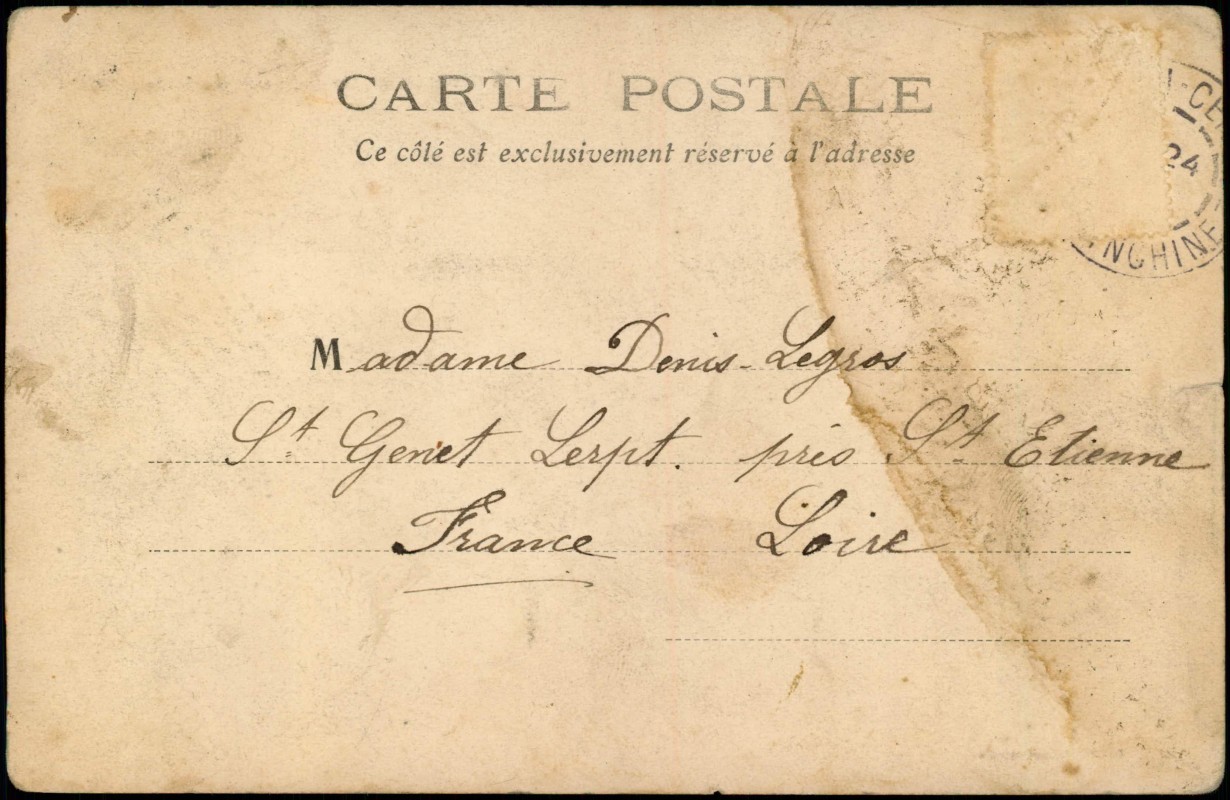 CARTE POSTALE
Ce côlé est exclusivement réservé à l'adresse
24
Madame Denis-Legros
St Genet Lerpt. près St Etienne
France Loire